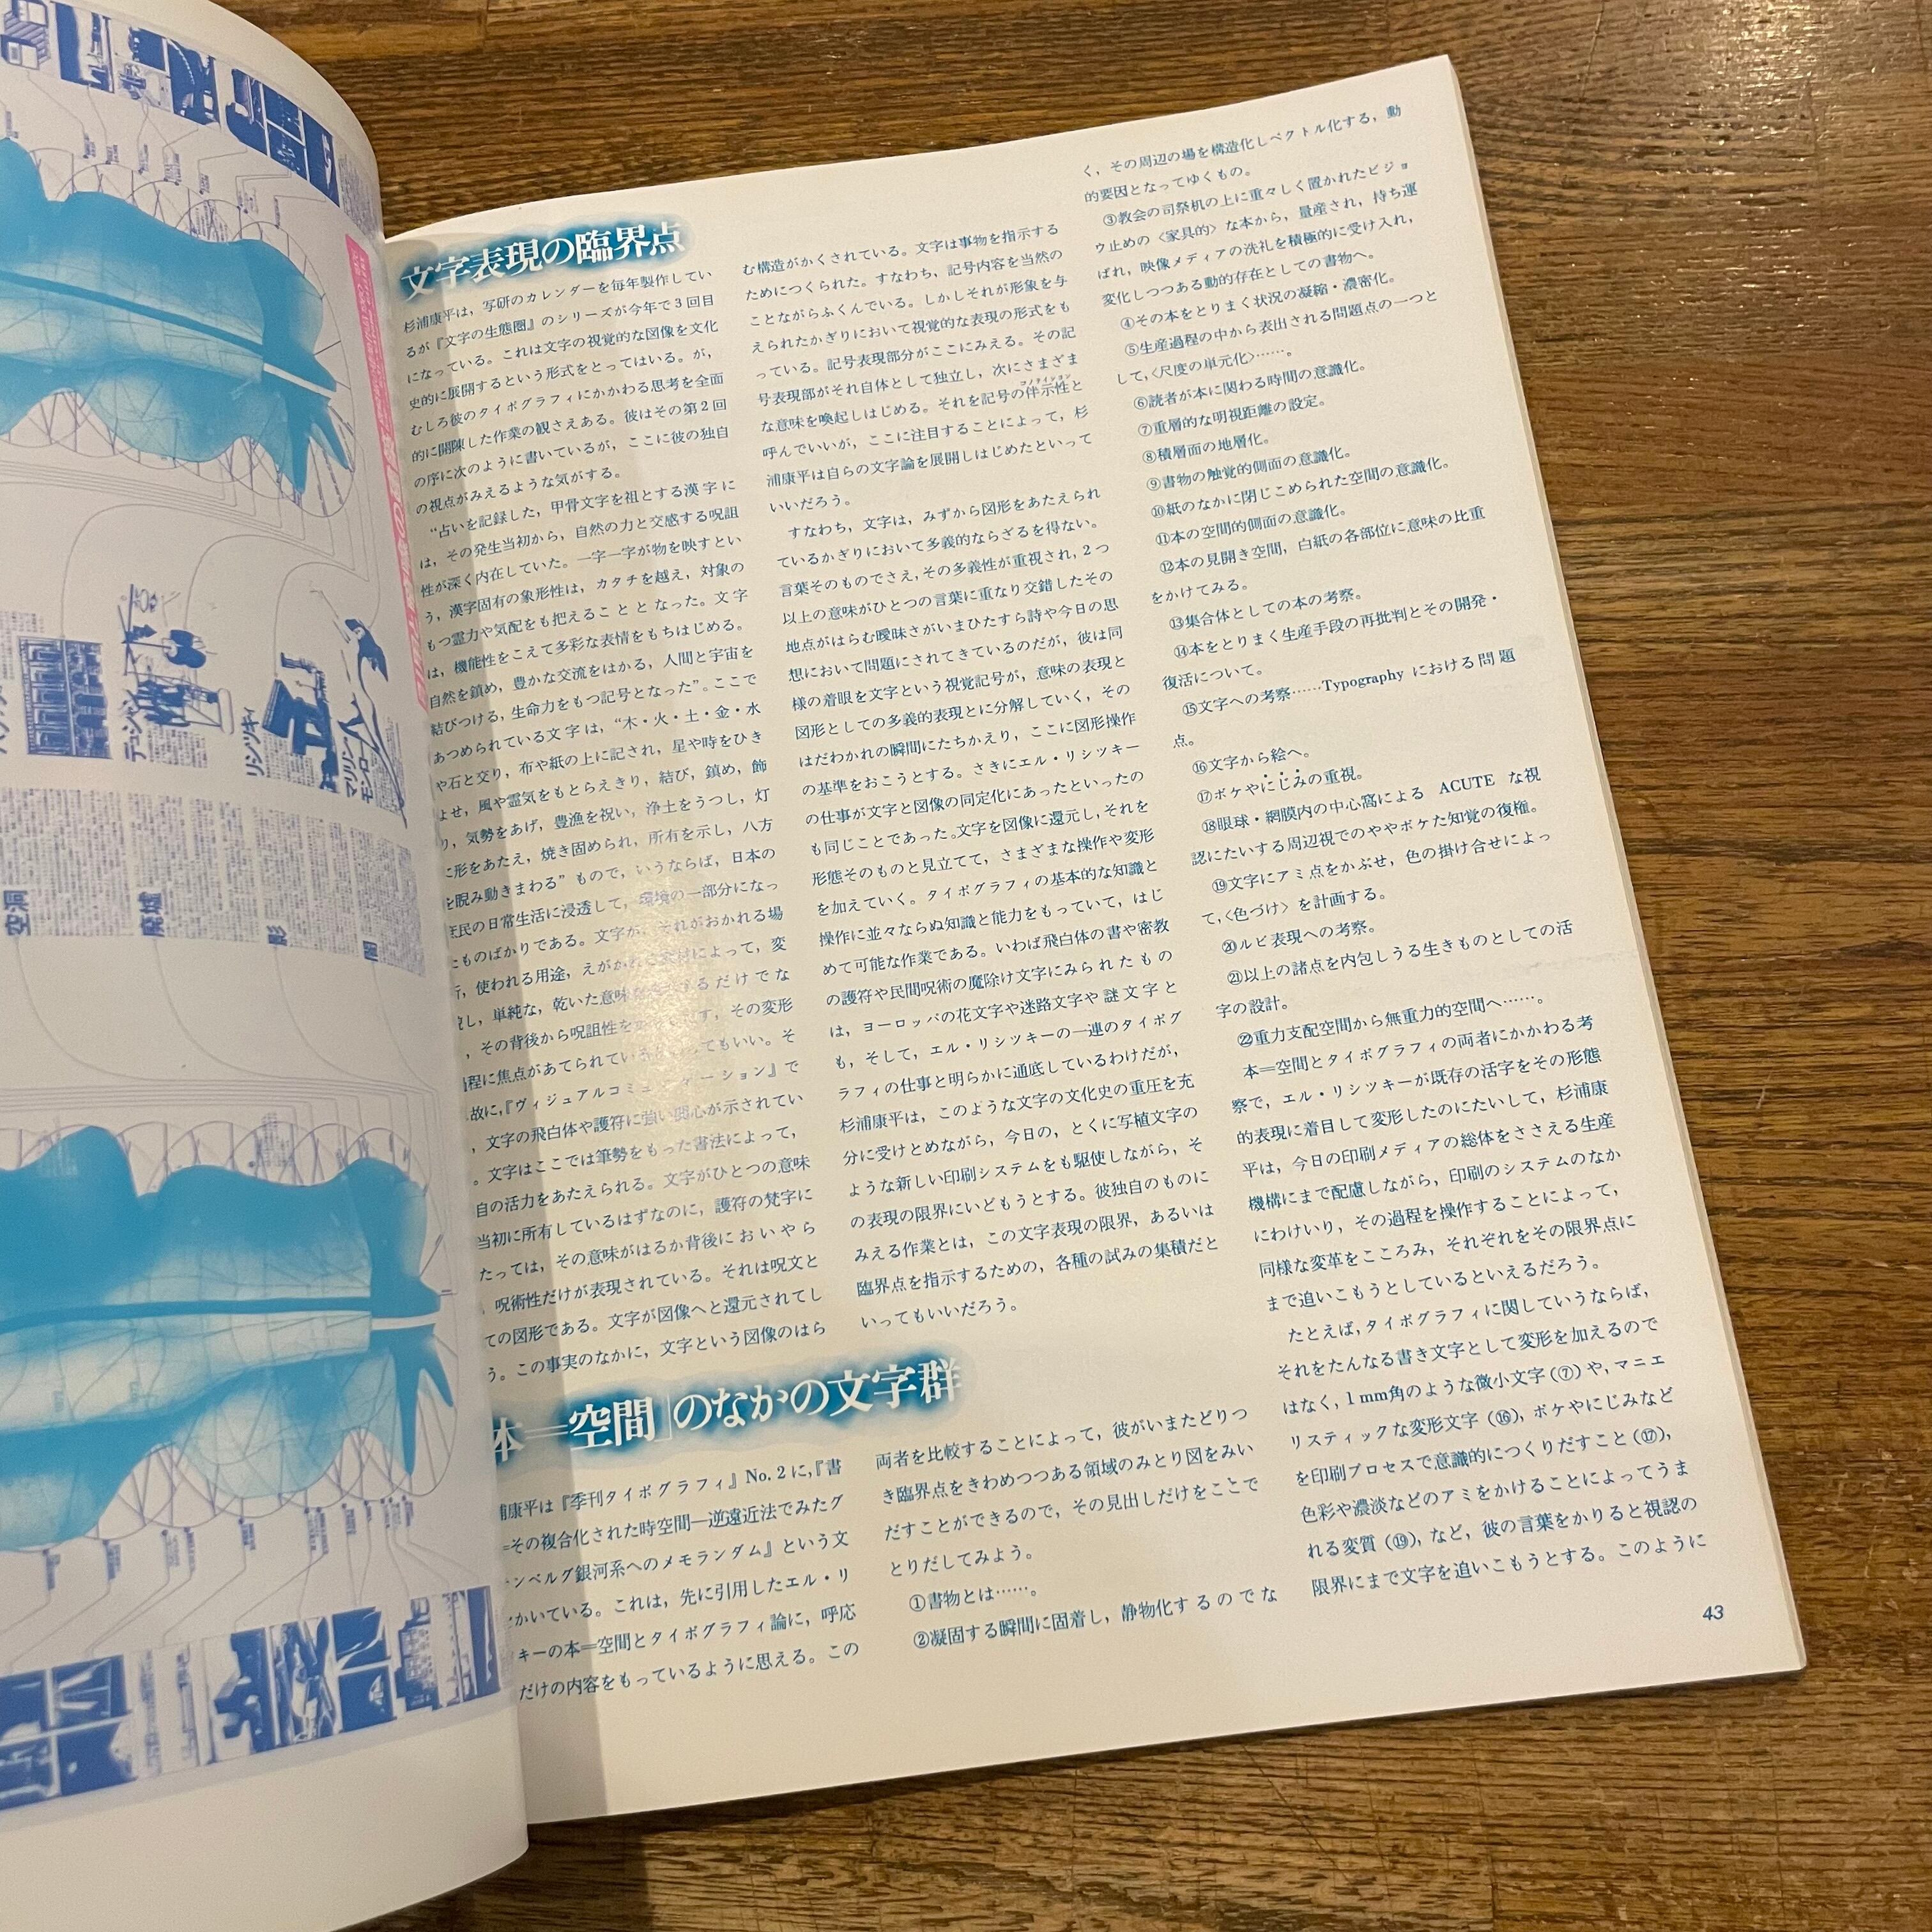 空洞
廃墟
影
闇
リシツキィ
マリリン・
モンロー
文字表現の臨界点
杉浦康平は，写研のカレンダーを毎年製作してい
るが『文字の生態圏』のシリーズが今年で３回目
になっている。これは文字の視覚的な図像を文化
史的に展開するという形式をとってはいる。が，
むしろ彼のタイポグラフィにかかわる思考を全面
的に開陳した作業の観さえある。彼はその第２回
の序に次のように書いているが，ここに彼の独自
の視点がみえるような気がする。
“占いを記録した，甲骨文字を祖とする漢字に
は，その発生当初から，自然の力と交感する呪詛
性が深く内在していた。一字一字が物を映すとい
う，漢字固有の象形性は，カタチを越え，対象の
もつ霊力や気配をも把えることとなった。文字
は，機能性をこえて多彩な表情をもちはじめる。
自然を鎮め，豊かな交流をはかる，人間と宇宙を
結びつける，生命力をもつ記号となった”。ここで
あつめられている文字は，“木・火・土・金・水
や石と交り，布や紙の上に記され，星や時をひき
よせ，風や霊気をもとらえきり，結び，鎮め，飾
り，気勢をあげ，豊漁を祝い，浄土をうつし，灯
に形をあたえ，焼き固められ，所有を示し，八方
を睨み動きまわる”もので，いうならば，日本の
庶民の日常生活に浸透して，環境の一部分になっ
たものばかりである。文字が，それがおかれる場
，使われる用途，えがかれる素材によって，変
し，単純な，乾いた意味を だけでな
，その背後から呪詛性を す，その変形
程に焦点があてられている てもいい。そ
故に，『ヴィジュアルコミュニケーション』で
，文字の飛白体や護符に強い関心が示されてい
。文字はここでは筆勢をもった書法によって，
自の活力をあたえられる。文字がひとつの意味
当初に所有しているはずなのに，護符の梵字に
たっては，その意味がはるか背後においやら
，呪術性だけが表現されている。それは呪文と
ての図形である。文字が図像へと還元されてし
う。この事実のなかに，文字という図像のはら
む構造がかくされている。文字は事物を指示する
ためにつくられた。すなわち，記号内容を当然の
ことながらふくんでいる。しかしそれが形象を与
えられたかぎりにおいて視覚的な表現の形式をも
っている。記号表現部分がここにみえる。その記
号表現部がそれ自体として独立し，次にさまざま
な意味を喚起しはじめる。それを記号の伴示性と
呼んでいいが，ここに注目することによって，杉
浦康平は自らの文字論を展開しはじめたといって
いいだろう。
すなわち，文字は，みずから図形をあたえられ
ているかぎりにおいて多義的ならざるを得ない。
言葉そのものでさえ，その多義性が重視され，２つ
以上の意味がひとつの言葉に重なり交錯したその
地点がはらむ曖昧さがいまひたすら詩や今日の思
想において問題にされてきているのだが，彼は同
様の着眼を文字という視覚記号が，意味の表現と
図形としての多義的表現とに分解していく，その
はだわかれの瞬間にたちかえり，ここに図形操作
の基準をおこうとする。さきにエル・リシツキー
の仕事が文字と図像の同定化にあったといったの
も同じことであった。文字を図像に還元し，それを
形態そのものと見立てて，さまざまな操作や変形
を加えていく。タイポグラフィの基本的な知識と
操作に並々ならぬ知識と能力をもっていて，はじ
めて可能な作業である。いわば飛白体の書や密教
の護符や民間呪術の魔除け文字にみられたもの
は，ヨーロッパの花文字や迷路文字や謎文字と
も，そして，エル・リシツキーの一連のタイポグ
ラフィの仕事と明らかに通底しているわけだが，
杉浦康平は，このような文字の文化史の重圧を充
分に受けとめながら，今日の，とくに写植文字の
ような新しい印刷システムをも駆使しながら，そ
の表現の限界にいどもうとする。彼独自のものに
みえる作業とは，この文字表現の限界，あるいは
臨界点を指示するための，各種の試みの集積だと
いってもいいだろう。
本＝空間」のなかの文字群
浦康平は『季刊タイポグラフィ』No.２に，『書
＝その複合化された時空間―逆遠近法でみたグ
ーンベルグ銀河系へのメモランダム』という文
かいている。これは，先に引用したエル・リ
キーの本＝空間とタイポグラフィ論に，呼応
だけの内容をもっているように思える。この
両者を比較することによって，彼がいまたどりつ
き臨界点をきわめつつある領域のみとり図をみい
だすことができるので，その見出しだけをここで
とりだしてみよう。
①書物とは……。
②凝固する瞬間に固着し，静物化するのでな
く，その周辺の場を構造化しベクトル化する，動
的要因となってゆくもの。
③教会の司祭机の上に重々しく置かれたビジョ
ウ止めの〈家具的〉な本から，量産され，持ち運
ばれ，映像メディアの洗礼を積極的に受け入れ，
変化しつつある動的存在としての書物へ。
④その本をとりまく状況の凝縮・濃密化。
⑤生産過程の中から表出される問題点の一つと
して，〈尺度の単元化〉……。
⑥読者が本に関わる時間の意識化。
⑦重層的な明視距離の設定。
⑧積層面の地層化。
⑨書物の触覚的側面の意識化。
⑩紙のなかに閉じこめられた空間の意識化。
⑪本の空間的側面の意識化。
⑫本の見開き空間，白紙の各部位に意味の比重
をかけてみる。
⑬集合体としての本の考察。
⑭本をとりまく生産手段の再批判とその開発・
復活について。
⑮文字への考察……Typography における問題
点。
⑯文字から絵へ。
⑰ボケやにじみの重視。
⑱眼球・網膜内の中心窩による ACUTE な視
認にたいする周辺視でのややボケた知覚の復権。
⑲文字にアミ点をかぶせ，色の掛け合せによっ
て，〈色づけ〉を計画する。
⑳ルビ表現への考察。
㉑以上の諸点を内包しうる生きものとしての活
字の設計。
㉒重力支配空間から無重力的空間へ……。
本＝空間とタイポグラフィの両者にかかわる考
察で，エル・リシツキーが既存の活字をその形態
的表現に着目して変形したのにたいして，杉浦康
平は，今日の印刷メディアの総体をささえる生産
機構にまで配慮しながら，印刷のシステムのなか
にわけいり，その過程を操作することによって，
同様な変革をこころみ，それぞれをその限界点に
まで追いこもうとしているといえるだろう。
たとえば，タイポグラフィに関していうならば，
それをたんなる書き文字として変形を加えるので
はなく，１mm角のような微小文字（⑦）や，マニエ
リスティックな変形文字（⑯），ボケやにじみなど
を印刷プロセスで意識的につくりだすこと（⑰），
色彩や濃淡などのアミをかけることによってうま
れる変質（⑲），など，彼の言葉をかりると視認の
限界にまで文字を追いこもうとする。このように
43